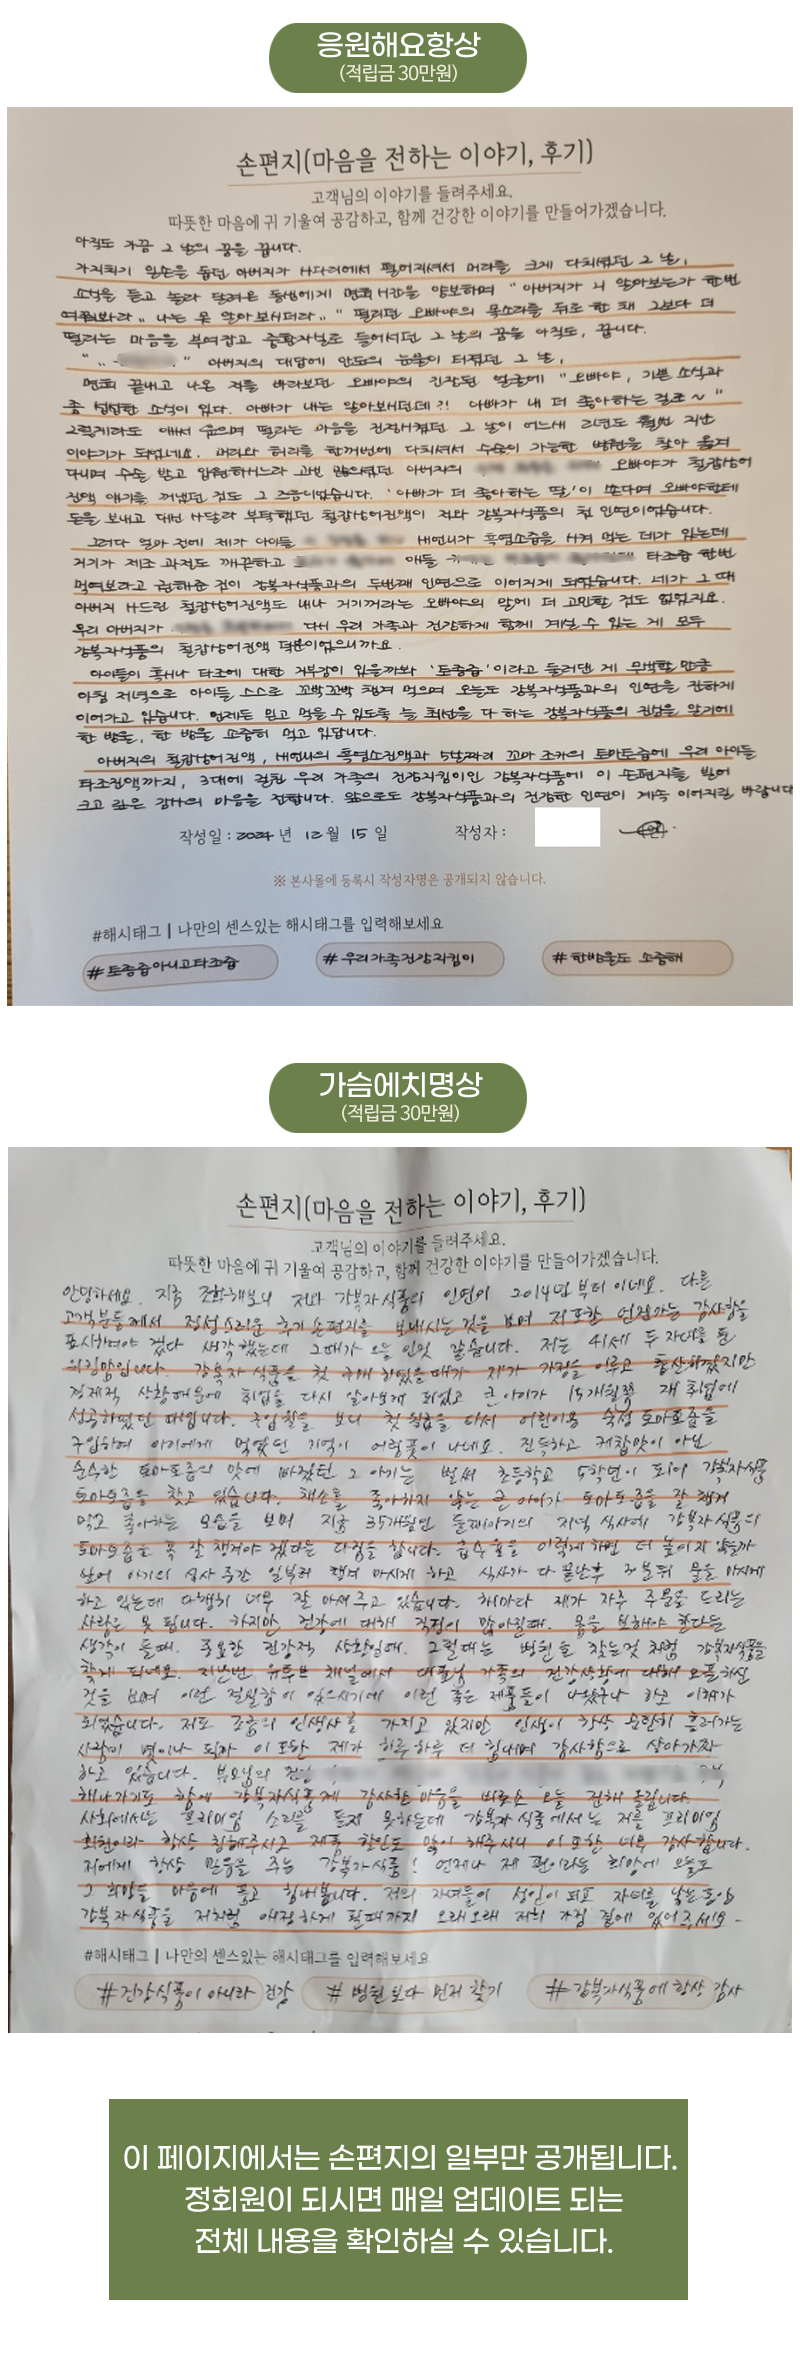 응원해요항상
(적립금 30만원)
손편지(마음을 전하는 이야기, 후기)
고객님의 이야기를 들려주세요.
따뜻한 마음에 귀 기울여 공감하고, 함께 건강한 이야기를 만들어가겠습니다.
아직도 가끔 그 날의 꿈을 꿉니다.
가지치기 일손을 돕던 아버지가 사다리에서 떨어지셔서 머리를 크게 다치셨던 그 날,
소식을 듣고 놀라 달려온 동생에게 면회시간을 양보하며 "아버지가 니 알아보는가 한번
여쭤봐라.. 나는 못 알아보시더라.." 떨리던 오빠야의 목소리를 뒤로 한 채 그보다 더
떨리는 마음을 부여잡고 중환자실로 들어서던 그 날의 꿈을 아직도, 꿉니다.
" .. " 아버지의 대답에 안도의 눈물이 터졌던 그 날,
면회 끝내고 나온 저를 바라보던 오빠야의 긴장된 얼굴에 "오빠야, 기쁜 소식과
좀 섭섭한 소식이 있다. 아빠가 내는 알아보시던데?! 아빠가 내 더 좋아하는 걸로~"
그렇게라도 애써 웃으며 떨리는 마음을 진정시켰던 그 날이 어느새 2년도 훨씬 지난
이야기가 되었네요. 머리와 허리를 한꺼번에 다치셔서 수술이 가능한 병원을 찾아 옮겨
다니며 수술 받고 입원하시느라 고생 많으셨던 아버지의 오빠야가 칡잡상어
진액 얘기를 꺼냈던 것도 그 즈음이었습니다. '아빠가 더 좋아하는 딸'이 쏜다며 오빠야한테
돈을 보내고 대신 사달라 부탁했던 칡잡상어진액이 저와 강복자식품의 첫 인연이었습니다.
그러다 얼마 전에 제가 아이들 새언니가 흑염소즙을 시켜 먹는 데가 있는데
거기가 제조 과정도 깨끗하고 애들 타조즙 한번
먹여보라고 권해준 것이 강복자식품과의 두번째 인연으로 이어지게 되었습니다. 네가 그 때
아버지 사드린 칡잡상어진액도 내나 거기꺼라는 오빠야의 말에 더 고민할 것도 없었지요.
우리 아버지가 다시 우리 가족과 건강하게 함께 계실 수 있는 게 모두
강복자식품의 칡잡상어진액 덕분이었으니까요.
아이들이 혹시나 타조에 대한 거부감이 있을까봐 '토종즙'이라고 둘러댄 게 무색할 만큼
아침 저녁으로 아이들 스스로 꼬박꼬박 챙겨 먹으며 오늘도 강복자식품과의 인연을 진하게
이어가고 있습니다. 언제든 믿고 먹을 수 있도록 늘 최선을 다 하는 강복자식품의 진심을 알기에
한 방울, 한 방울 소중히 먹고 있답니다.
아버지의 칡잡상어진액, 새언니의 흑염소진액과 5살짜리 꼬마 조카의 토마토즙에 우리 아이들
타조진액까지, 3대에 걸친 우리 가족의 건강지킴이인 강복자식품에 이 손편지를 빌어
크고 깊은 감사의 마음을 전합니다. 앞으로도 강복자식품과의 건강한 인연이 계속 이어지길 바랍니다
작성일 : 2024 년 12 월 15 일 작성자 : (인)
※ 본사몰에 등록시 작성자명은 공개되지 않습니다.
#해시태그 | 나만의 센스있는 해시태그를 입력해보세요
#토종즙아니고타조즙 #우리가족건강지킴이 #한방울도 소중해
가슴에치명상
(적립금 30만원)
손편지(마음을 전하는 이야기, 후기)
고객님의 이야기를 들려주세요.
따뜻한 마음에 귀 기울여 공감하고, 함께 건강한 이야기를 만들어가겠습니다.
안녕하세요. 지금 조회해보니 저와 강복자식품의 인연이 2014년부터 이네요. 다른
고객분들께서 정성스러운 후기 손편지를 보내시는 것을 보며 저 또한 언젠가는 감사함을
표시하여야 겠다 생각했는데 그때가 오늘 인것 같습니다. 저는 41세 두 자녀를 둔
워킹맘입니다. 강복자 식품을 첫 구매하였을때가 제가 가정을 이루고 출산하였지만
경제적 상황때문에 취업을 다시 알아보게 되었고 큰 아이가 15개월쯤 재취업에
성공하였던 때입니다. 구입일을 보니 첫 월급을 타서 어린이용 숙성 토마토즙을
구입하여 아기에게 먹였던 기억이 어렴풋이 나네요. 진득하고 케찹맛이 아닌
순수한 토마토즙의 맛에 빠졌던 그 아기는 벌써 초등학교 5학년이 되어 강복자식품
토마토즙을 찾고 있습니다. 채소를 좋아하지 않는 큰 아이가 토마토즙을 잘 챙겨
먹고 좋아하는 모습을 보며 지금 35개월인 둘째아기의 저녁 식사에 강복자식품의
토마토즙을 꼭 잘 챙겨야 겠다는 다짐을 합니다. 흡수율을 이렇게하면 더 높이지 않을까
싶어 아기의 식사 중간 일부러 챙겨 마시게 하고 식사가 다 끝난후 30분뒤 물을 마시게
하고 있는데 다행히 너무 잘 마셔주고 있습니다. 해마다 제가 자주 주문을 드리는
사람은 못 됩니다. 하지만 건강에 대해 걱정이 많아질때. 몸을 보해야 한다는
생각이 들때. 중요한 건강적 상황일때. 그럴때는 병원을 찾는것 처럼 강복자식품을
찾게 되네요. 지난번 유튜브 채널에서 대표님 가족의 건강상황에 대해 오픈하신
것을 보며 이런 절실함이 있으시기에 이런 좋은 제품들이 나왔구나 하고 이해가
되었습니다. 저도 조금의 인생사를 가지고 있지만 인생이 항상 순탄히 흘러가는
사람이 몇이나 될까 이 또한 제가 하루하루 더 힘내며 감사함으로 살아가자
하고 있습니다. 부모님의 건강
해나가기도 함에 강복자식품께 감사한 마음을 비로소 오늘 전해 올립니다.
사회에서는 프리미엄 소리를 듣지 못하는데 강복자 식품에서는 저를 프리미엄
회원이라 항상 칭해주시고 제품 할인도 많이 해주시니 이 또한 너무 감사합니다.
저에게 항상 믿음을 주는 강복자식품! 언제나 제 편이라는 희망에 오늘도
그 희망을 마음에 품고 힘내봅니다. 저의 자녀들이 성인이 되고 자녀를 낳는동안
강복자식품을 저처럼 애정하게 될때까지 오래오래 저희 가정 곁에 있어주세요~
#해시태그 | 나만의 센스있는 해시태그를 입력해보세요
#건강식품이 아니라 건강 #병원보다 먼저 찾기 #강복자식품에 항상 감사
이 페이지에서는 손편지의 일부만 공개됩니다.
정회원이 되시면 매일 업데이트 되는
전체 내용을 확인하실 수 있습니다.